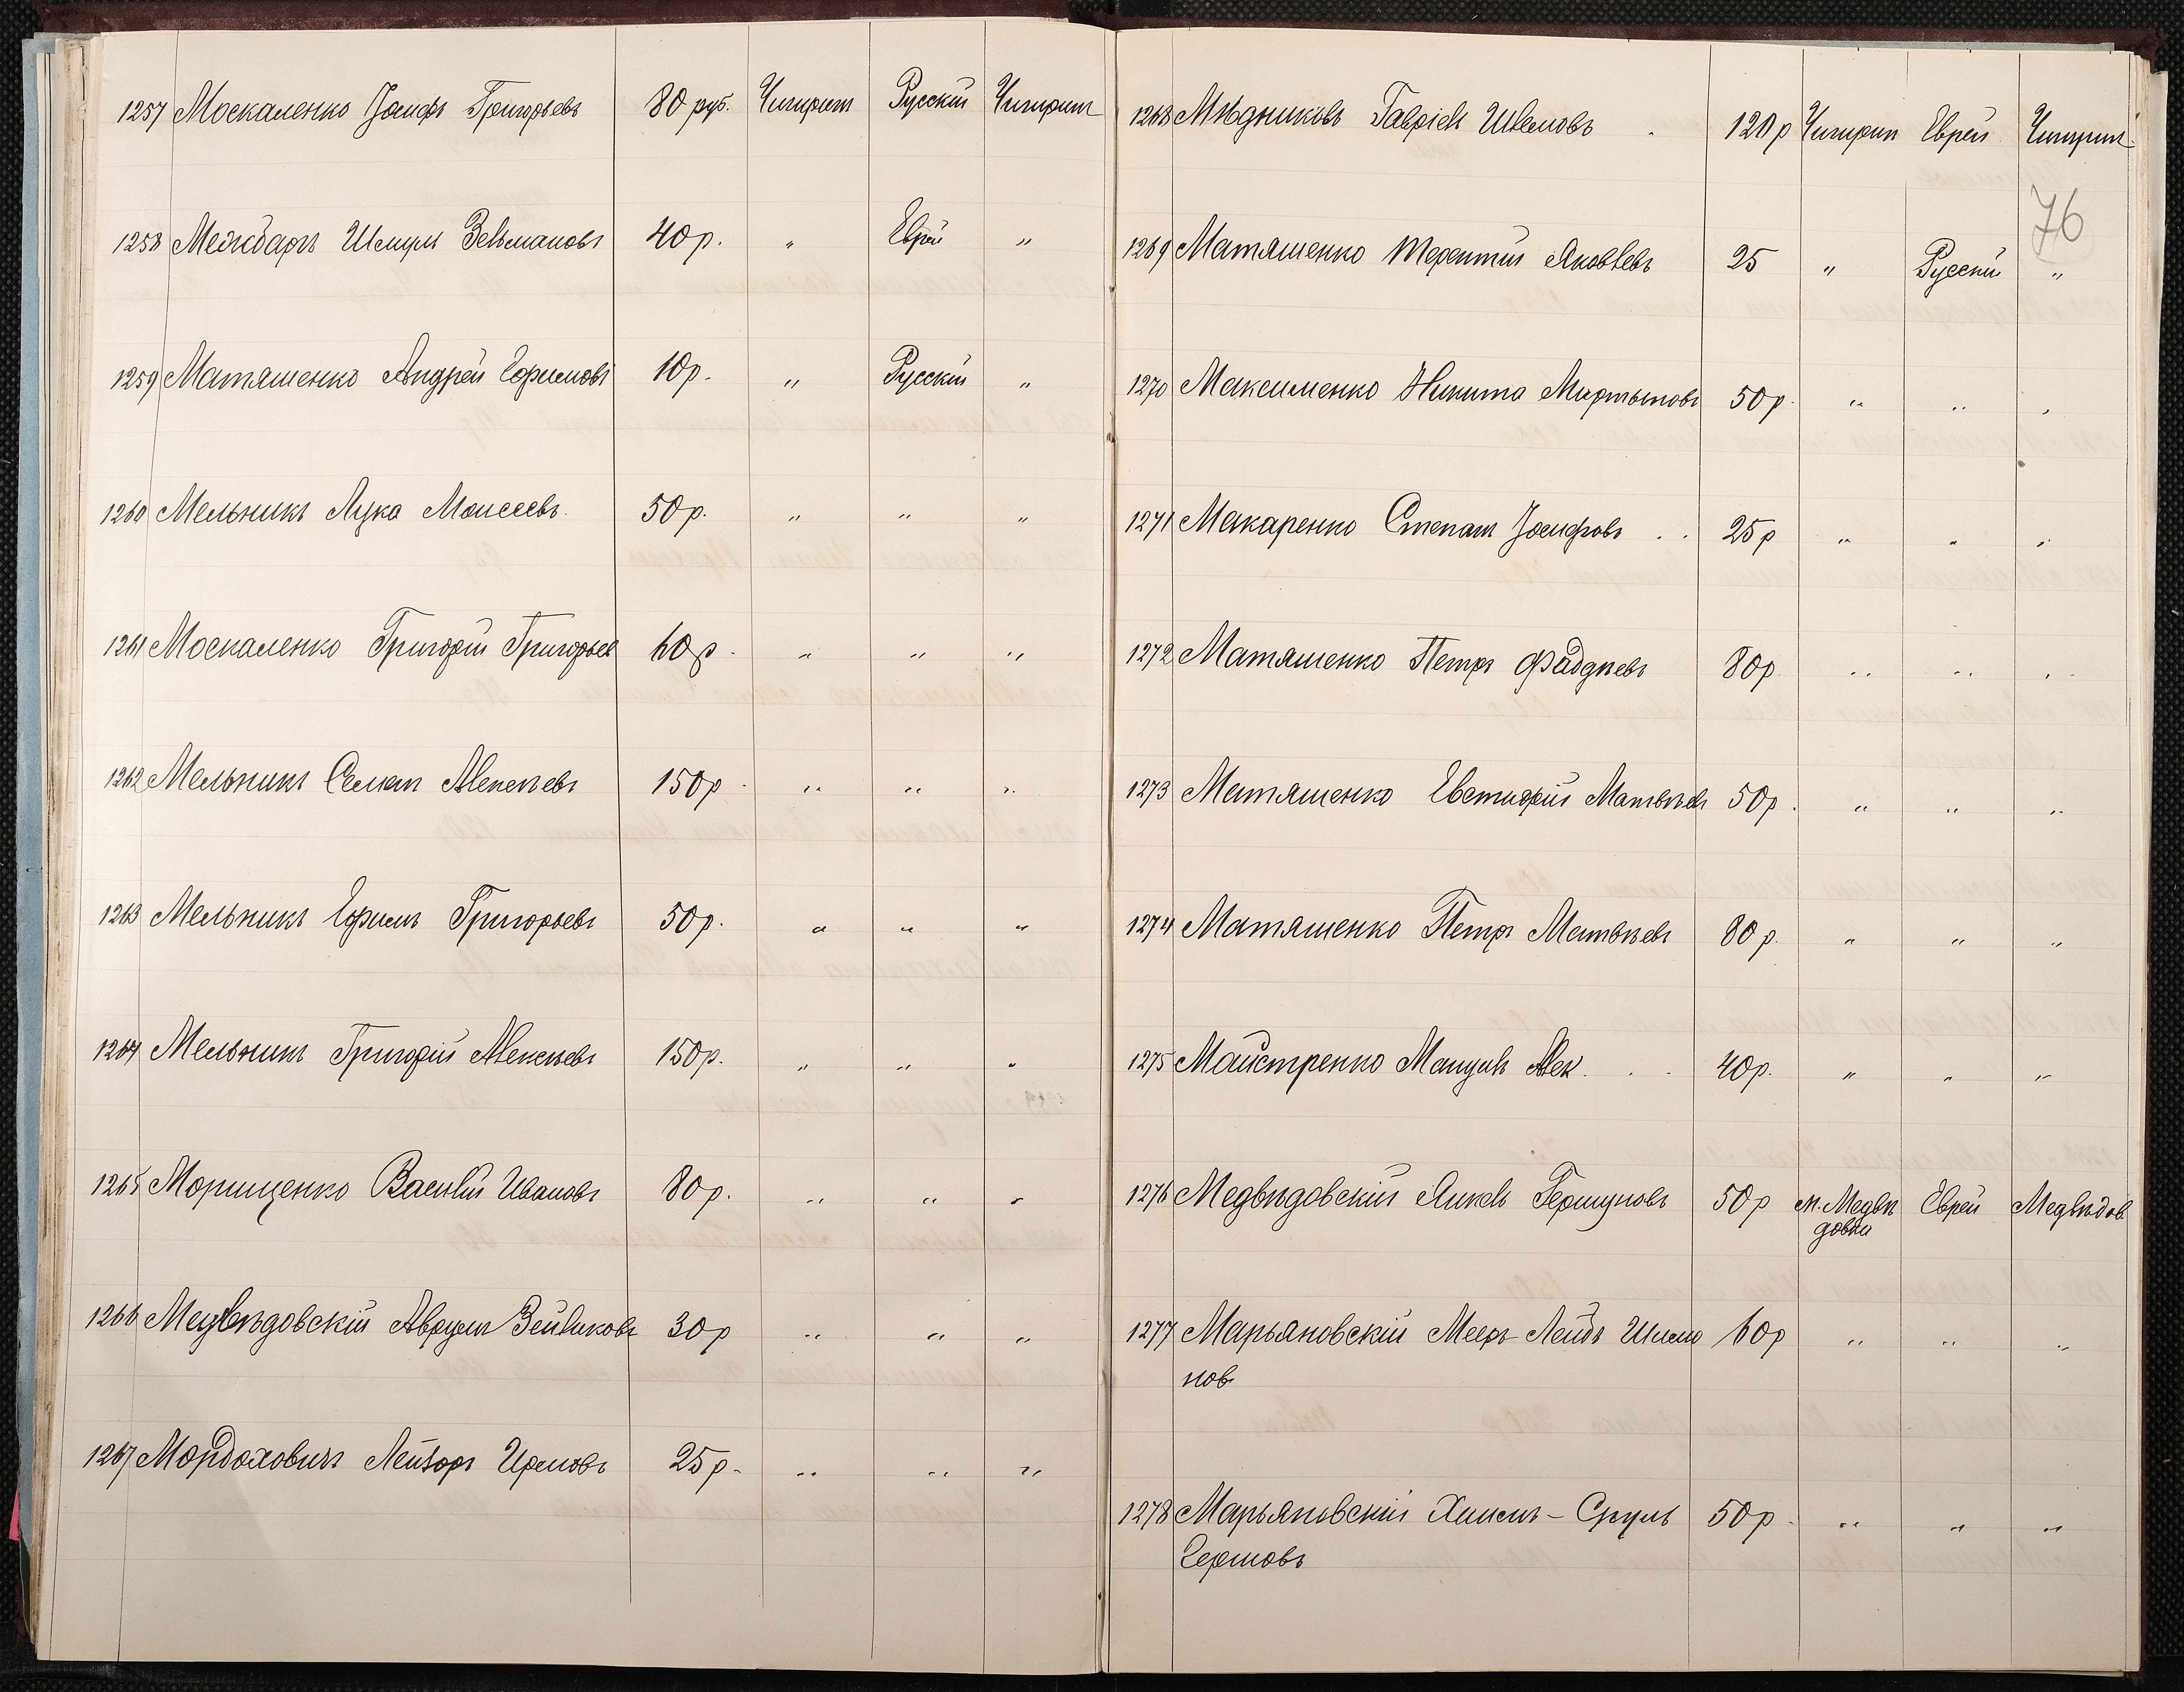 1257 Москаленко Іосифъ Григорьевъ 80 руб. Чигирин Русскій Чигирин
1258 Межбаръ Шмуль Зельмановъ 40 р. " Еврей "
1259 Маташенко Андрей Ефимовъ 10 р. " Русскій "
1260 Мельникъ Лука Моисеевъ. 50 р. " " "
1261 Москаленко Григорій Григорьев 60 р. " " "
1262 Мельникъ Семен Алексѣевъ 150 р. " " "
1263 Мельникъ Ефимъ Григорьевъ 50 р. " " "
1264 Мельникъ Григорій Алексѣевъ 150 р. " " "
1265 Морищенко Василій Ивановъ 80 р. " " "
1266 Медвѣдовскій Аврумъ Зейликовъ 30 р " " "
1267 Мордоховичъ Лейзоръ Ирмовъ 25 р. " " "
1268 Мѣдниковъ Гавріель Шлемовъ . 120 р Чигирин Еврей Чигирин
76
1269 Маташенко Терентій Яковлевъ 25 " Русскій "
1270 Максименко Никита Мартыновъ 50 р. " " "
1271 Макаренко Степанъ Іосифовъ . . 25 р " " "
1272 Маташенко Петръ Фаддѣевъ 80 р. " " "
1273 Маташенко Евстафій Матвѣевъ 50 р. " " "
1274 Маташенко Петръ Матвѣевъ 80 р. " " "
1275 Майстренко Мануилъ Алек. . . 40 р. " " "
1276 Медвѣдовскій Янкель Гершуновъ 50 р м. Медвѣ Еврей Медвѣдов
довки
1277 Марьяновскій Меер-Лейбъ Шимо 60 р " " "
нов
1278 Марьяновскій Хаимъ-Сруль 50 р. " " "
Гершовъ